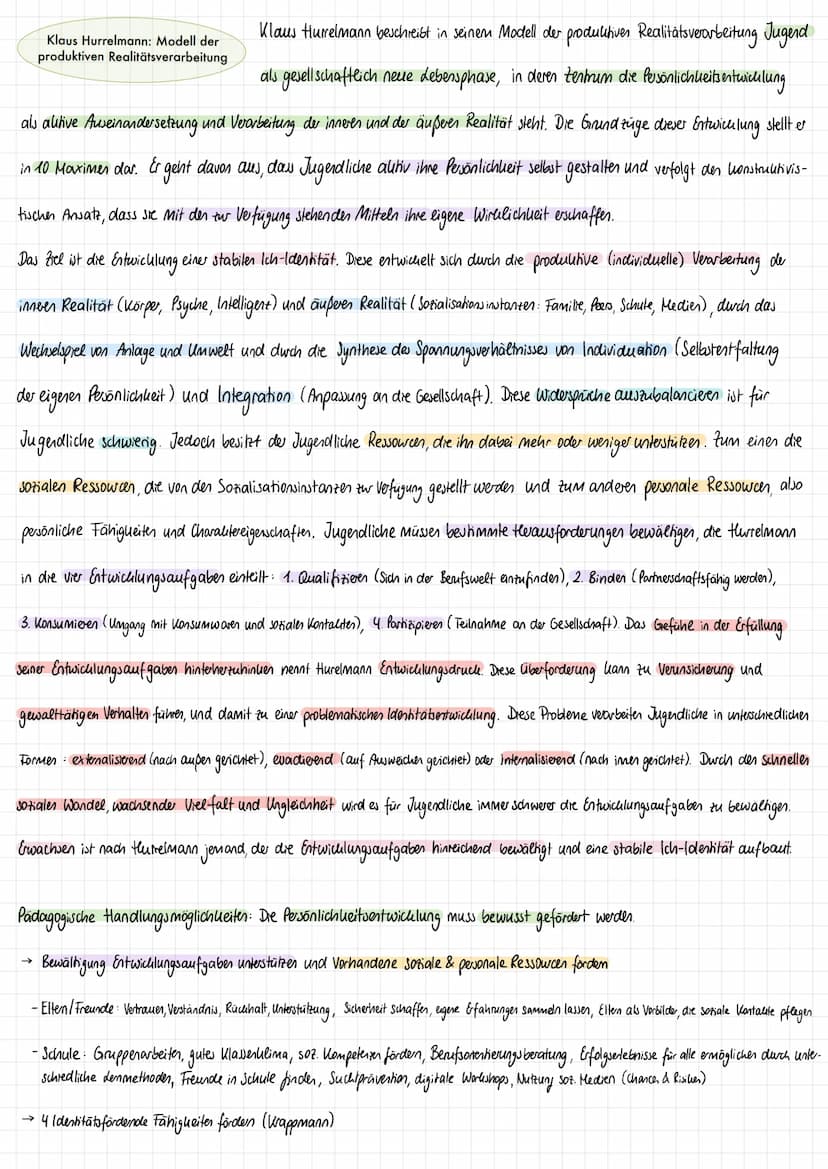 Klaus Hurrelmann: Modell der
produktiven Realitätsverarbeitung
Klaus Hurrelmann beschreibt in seinem Modell der produktiven Realitätsverarbeitung Jugend
als gesellschaftlich neue Lebensphase, in deren Zentrum die Persönlichkeitsentwicklung
als aktive Auseinandersetzung und Verarbeitung der inneren und der äußeren Realität steht. Die Grundzüge dieser Entwicklung stellt er
in 10 Maximen dar. Er geht davon aus, dass Jugendliche aktiv ihre Persönlichkeit selbst gestalten und verfolgt den konstruktivis-
tischen Ansatz, dass sie mit den zur Verfügung stehenden Mitteln ihre eigene Wirklichkeit erschaffen.
Das Ziel ist die Entwicklung einer stabilen Ich-Identität. Diese entwickelt sich durch die produktive (individuelle) Verarbeitung der
inneren Realität (Körper, Psyche, Intelligenz) und äußeren Realität (Sozialisationsinstanzen: Familie, Peers, Schule, Medien), durch das
Wechselspiel von Anlage und Umwelt und durch die Synthese des Spannungsverhältnisses von Individuation (Selbstentfaltung
der eigenen Persönlichkeit) und Integration (Anpassung an die Gesellschaft). Diese Widersprüche auszubalancieren ist für
Jugendliche schwierig. Jedoch besitzt der Jugendliche Ressourcen, die ihn dabei mehr oder weniger unterstützen. Zum einen die
sozialen Ressourcen, die von den Sozialisationsinstanzen zur Verfügung gestellt werden und zum anderen personale Ressourcen, also
persönliche Fähigkeiten und Charaktereigenschaften. Jugendliche müssen bestimmte Herausforderungen bewältigen, die Hurrelmann
in die vier Entwicklungsaufgaben einteilt: 1. Qualifizieren (Sich in der Berufswelt einzufinden), 2. Binden (Partnerschaftsfähig werden),
3. Konsumieren (Umgang mit Konsumwaren und sozialen Kontakten), 4. Partizipieren (Teilnahme an der Gesellschaft). Das Gefühl in der Erfüllung
seiner Entwicklungsaufgaben hinterherzuhinken nennt Hurelmann Entwicklungsdruck. Diese Überforderung kann zu Verunsicherung und
gewalttätigen Verhalten führen, und damit zu einer problematischen Identitätsentwicklung. Diese Probleme verarbeiten Jugendliche in unterschiedlichen
Formen: externalisierend (nach außen gerichtet), evadierend (auf Ausweichen gerichtet) oder internalisierend (nach innen gerichtet). Durch den schnellen
sozialen Wandel, wachsender Vielfalt und Ungleichheit wird es für Jugendliche immer schwerer die Entwicklungsaufgaben zu bewältigen.
Erwachsen ist nach Hurrelmann jemand, der die Entwicklungsaufgaben hinreichend bewältigt und eine stabile Ich-Identität aufbaut.
Pädagogische Handlungsmöglichkeiten: Die Persönlichkeitsentwicklung muss bewusst gefördert werden.
→ Bewältigung Entwicklungsaufgaben unterstützen und Vorhandene soziale & personale Ressourcen fördern
- Eltern/Freunde: Vertrauen, Verständnis, Rückhalt, Unterstützung, Sicherheit schaffen, eigene Erfahrungen sammeln lassen, Eltern als Vorbilder, die soziale Kontakte pflegen
- Schule: Gruppenarbeiten, gutes Klassenklima, soz. Kompetenzen fördern, Berufsorientierungsberatung, Erfolgserlebnisse für alle ermöglichen durch unter-
schiedliche Lernmethoden, Freunde in Schule finden, Suchtprävention, digitale Workshops, Nutzung soz. Medien (Chancen & Risiken)
→ 4 Identitätsfördende Fähigkeiten fördern (Krappmann)